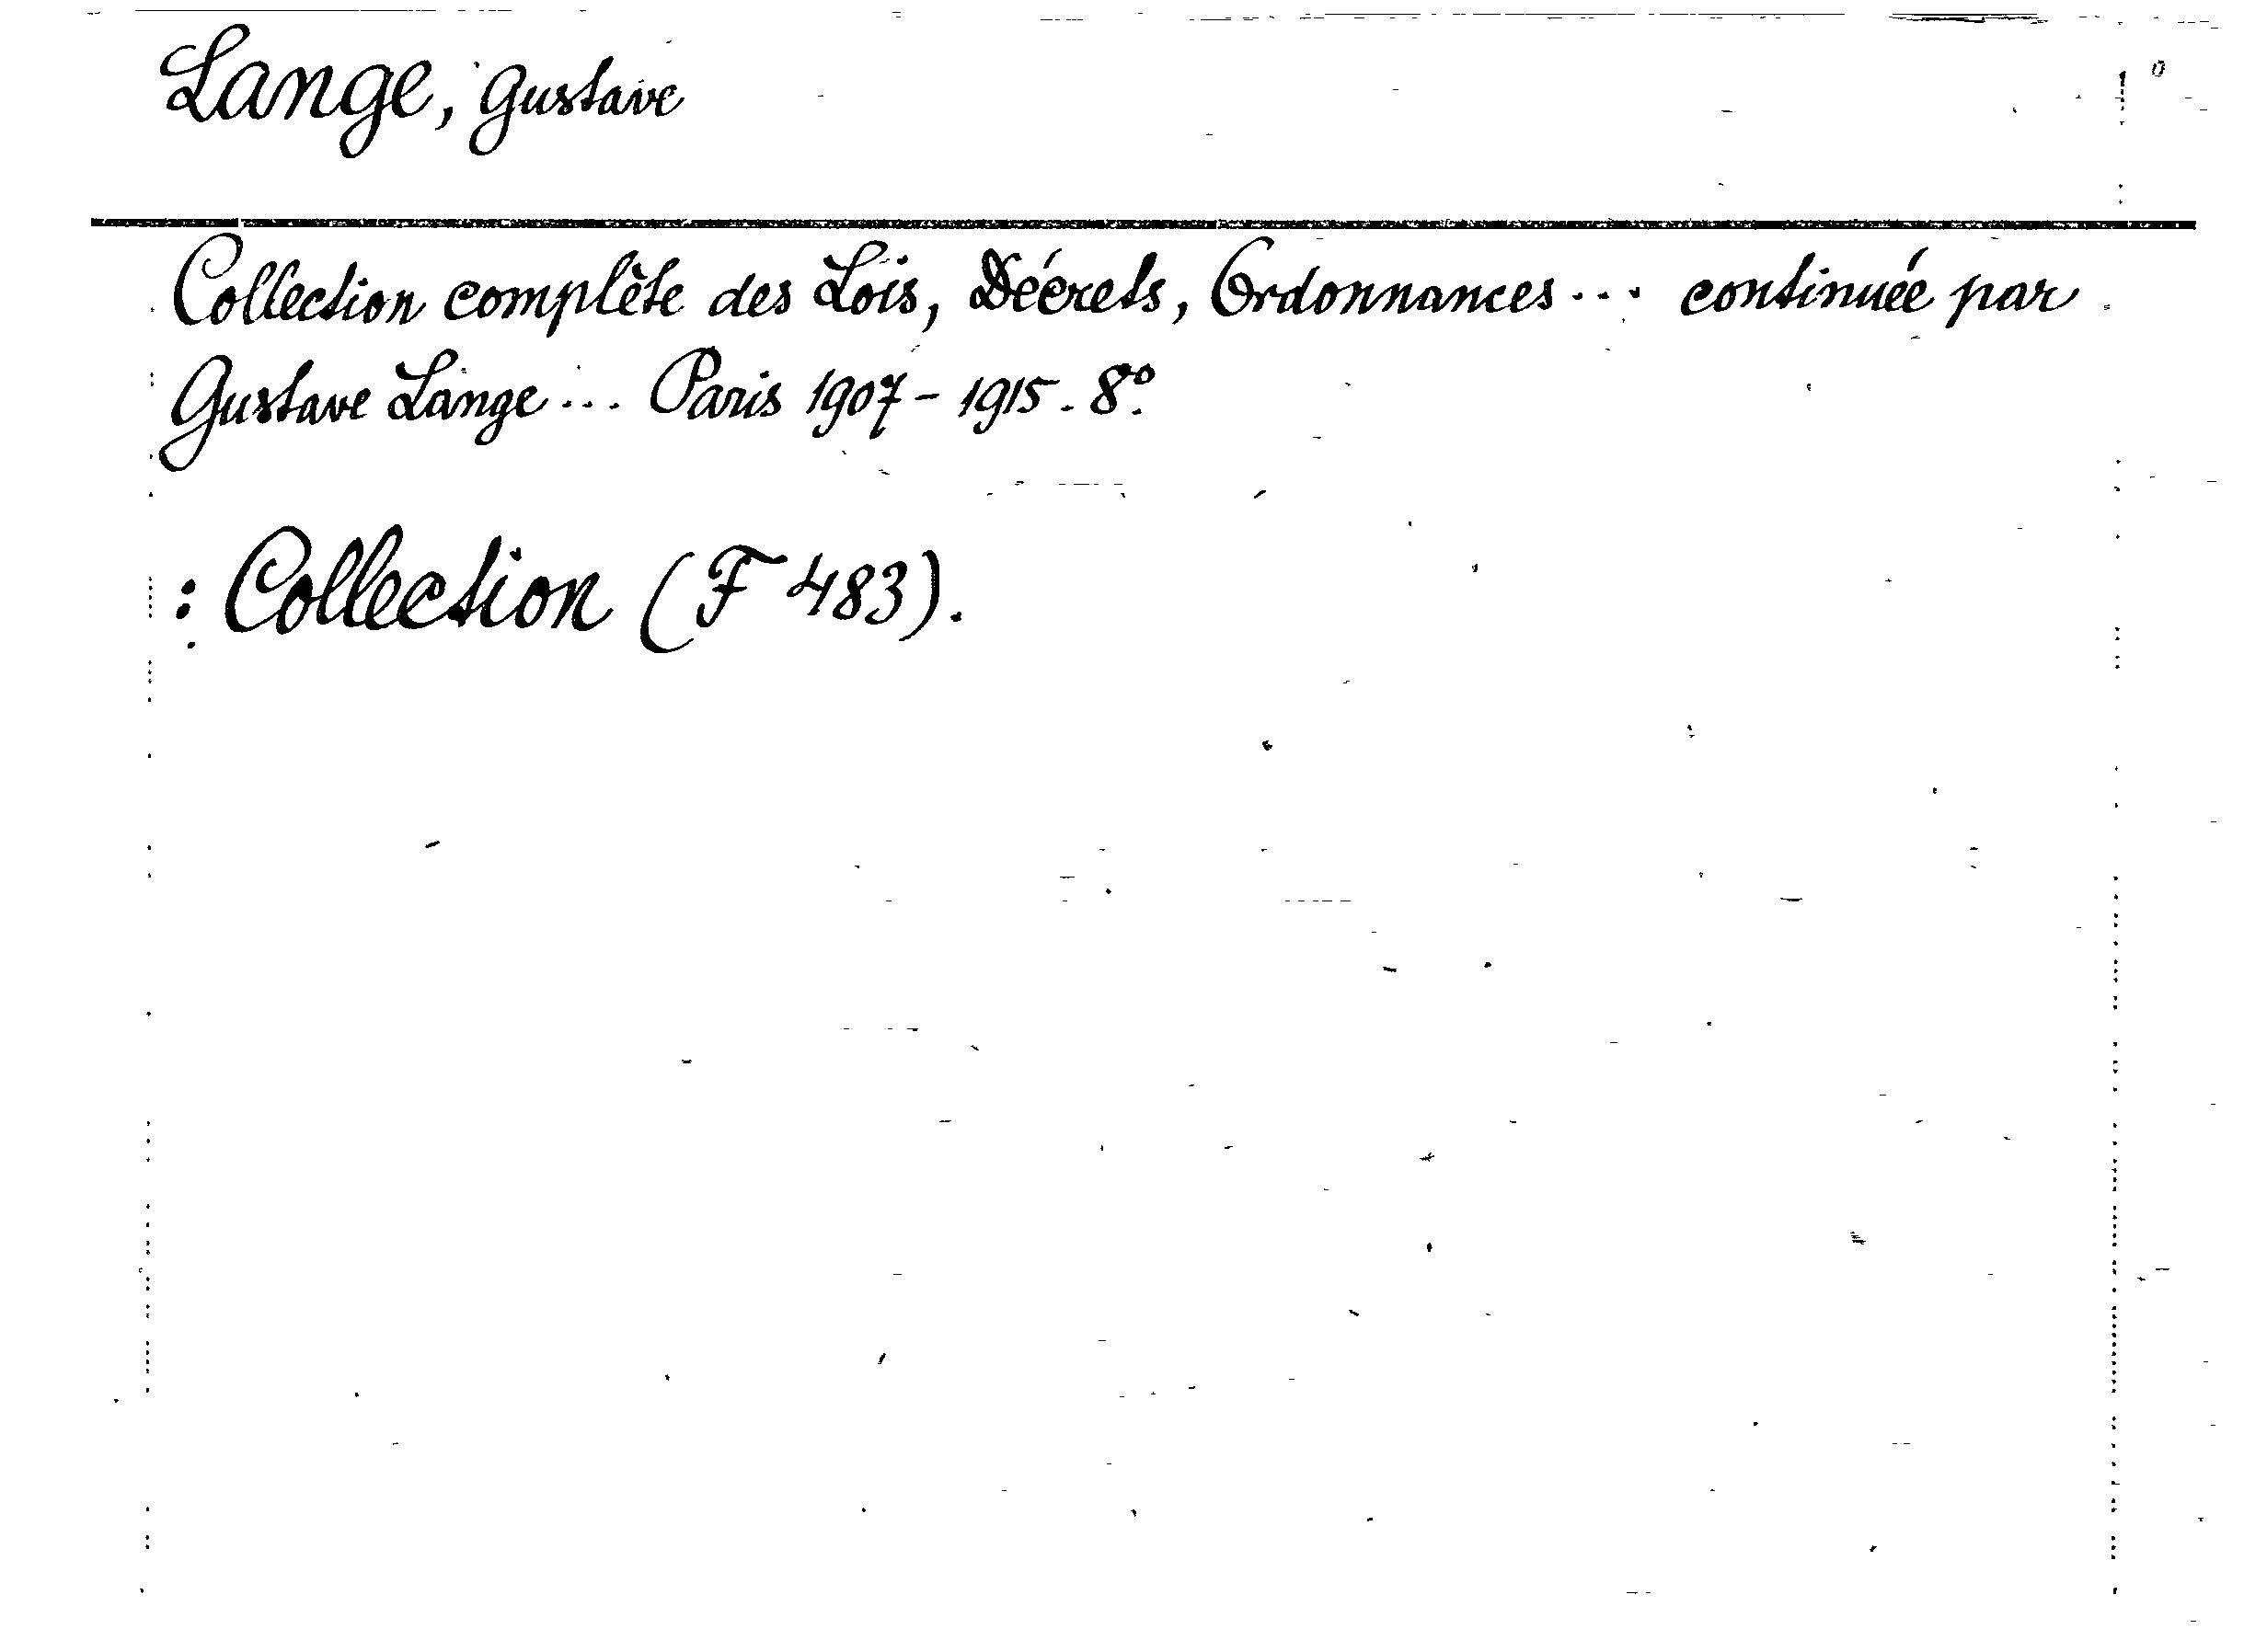 Lange, Gustave
Collection complète des Lois, Décrets, Ordonnances ... continuée par
Gustave Lange ... Paris 1907 - 1915. 8º.
: Collection (F 483).